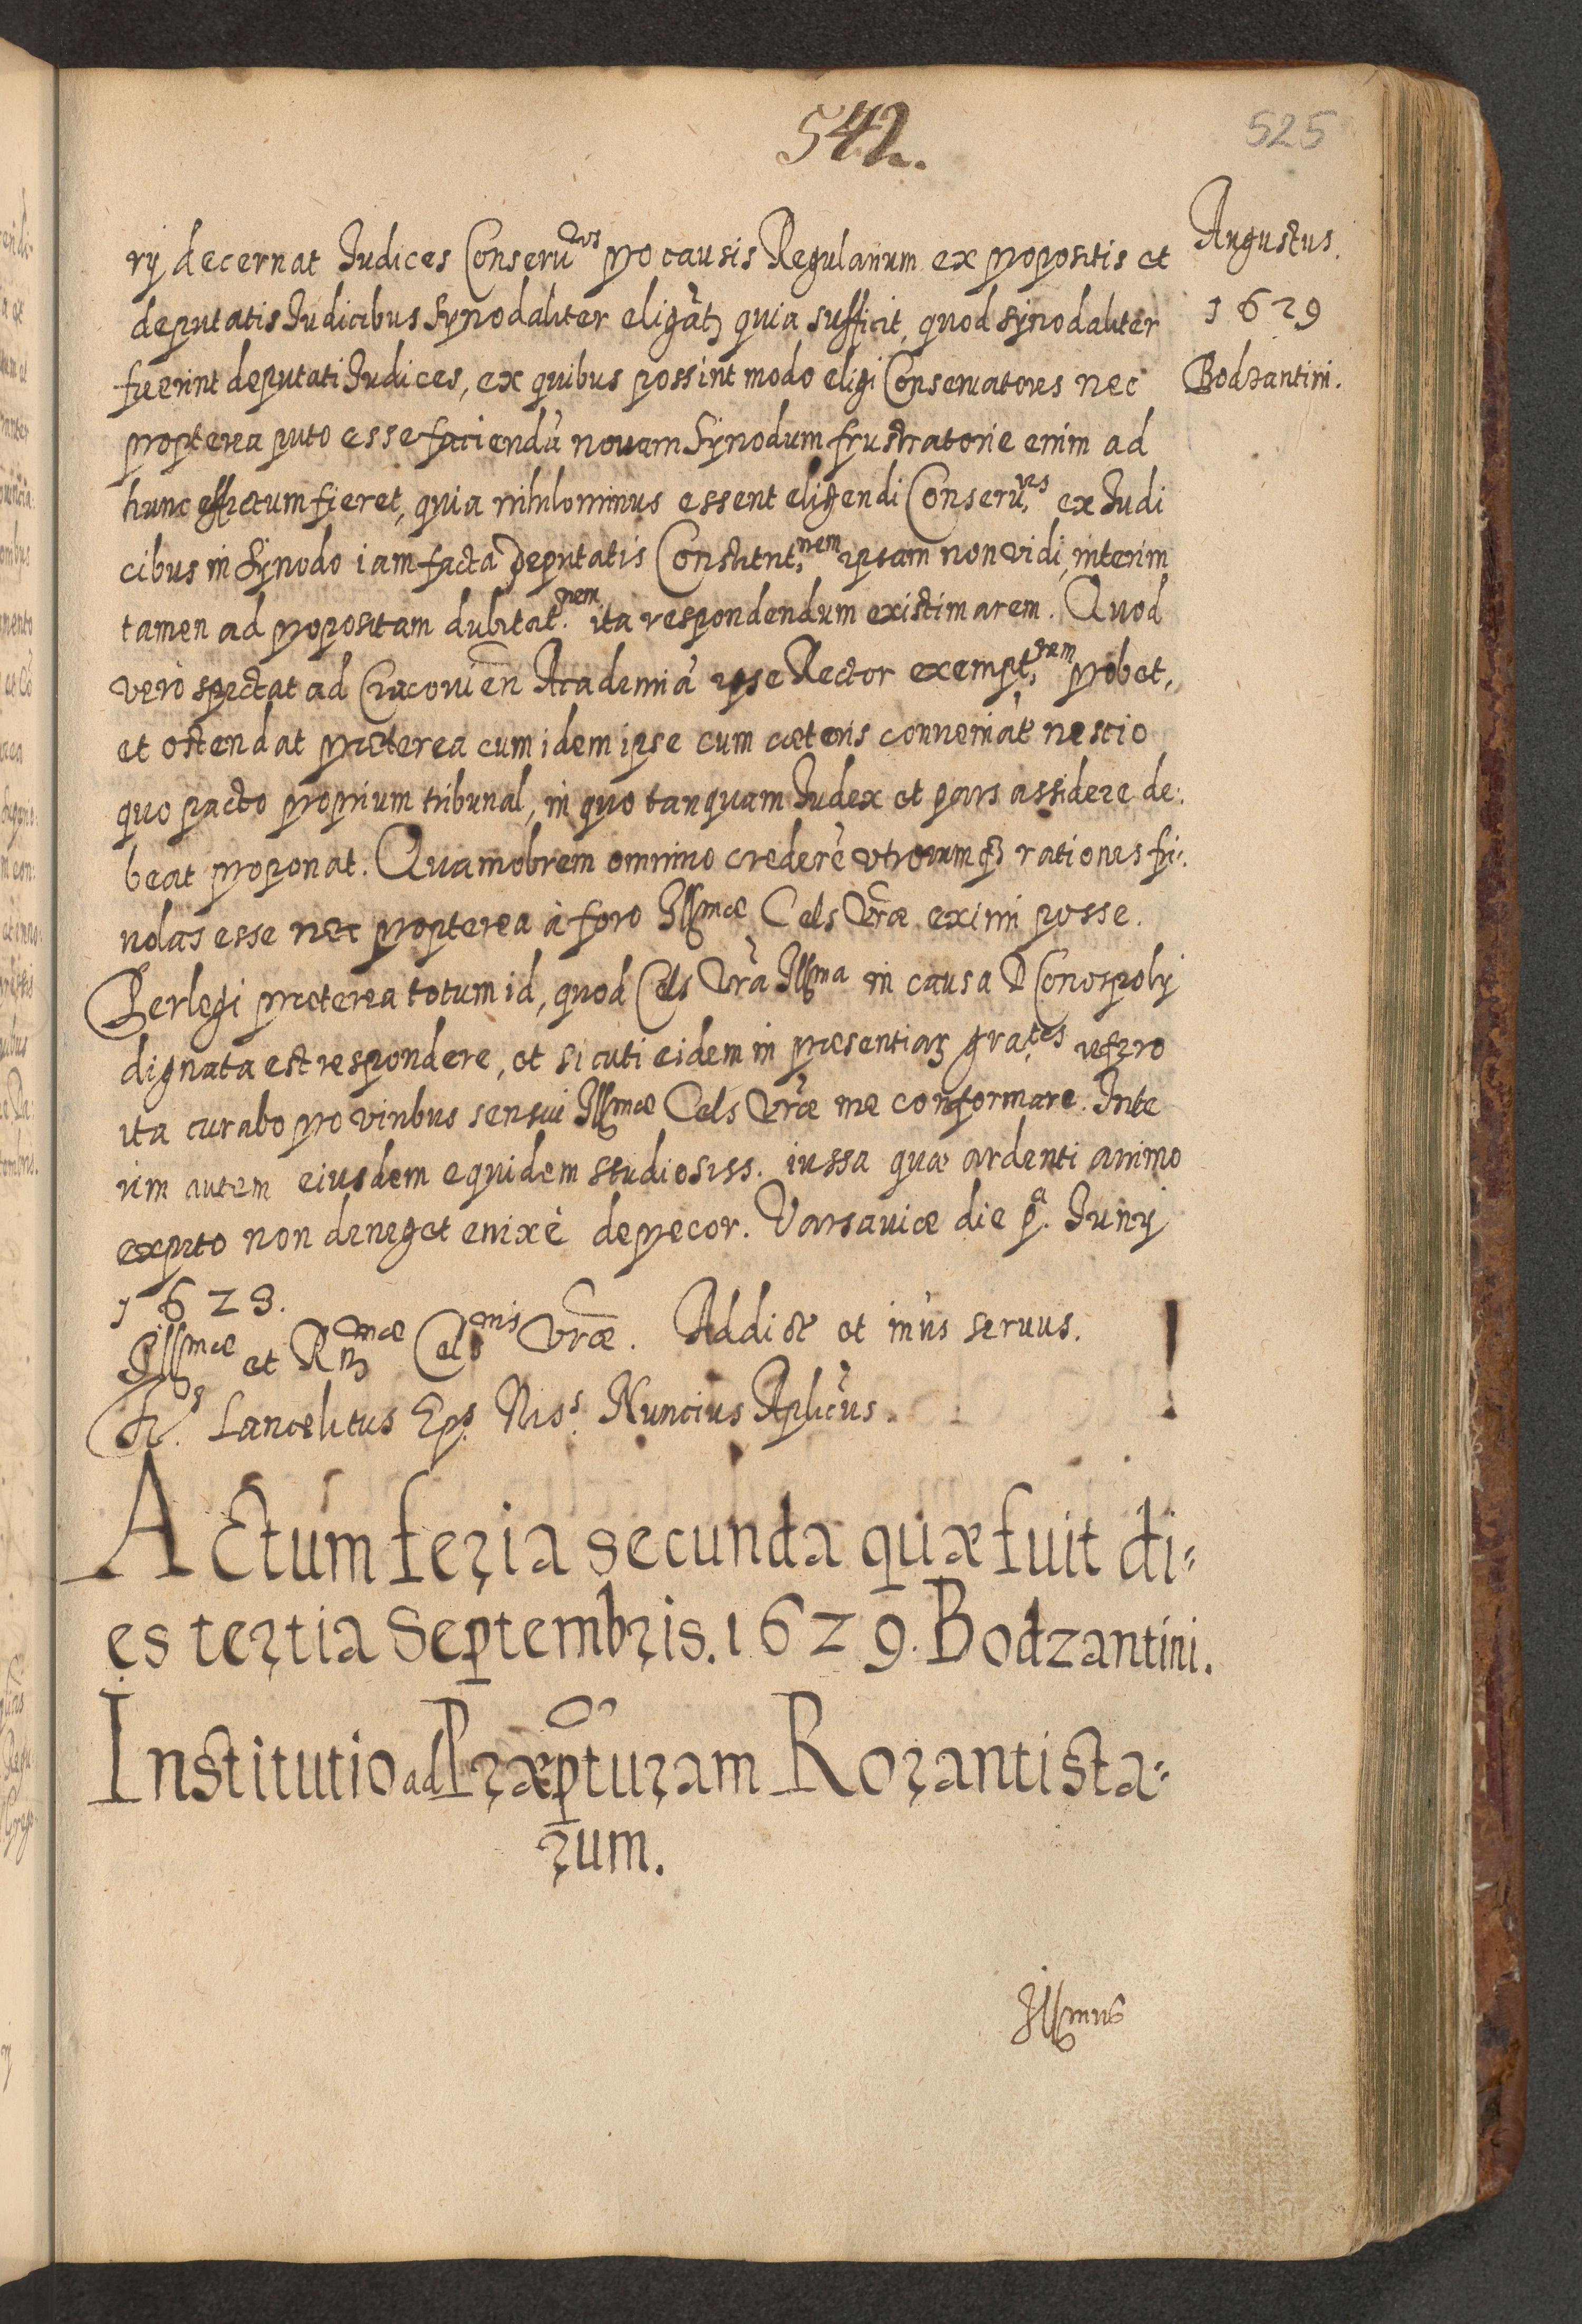 542.
525
Augustus.
1629
Bodzantini.
rij decernat Iudices Conseru.res pro causis Regularium ex propositis et
deputatis Iudicibus Synodaliter eligãtʒ quia sufficit, quod synodaliter
fuerint deputati Iudices, ex quibus possint modo eligi Conseruatores nec
propterea puto esse faciendũ nouam Synodum frustratorie enim ad
hunc effectum fieret, quia nihilominus essent eligendi Conseru.res ex Iudi
cibus in Synodo iam facta Deputatis Constitut.nem ipsam non vidi, interim
tamen ad propositam dubitat.nem ita respondendum existimarem. Quod
verò spectat ad Cracouien̄ Academiã ipse Rector exempt.nem probet,
et ostendat præterea cum idem ipse cum cæteris conueniat nescio
quo pacto proprium tribunal, in quo tanquam Iudex et pars assidere de:
beat proponat. Quamobrem omnino crederẽ vtrorumqʒ rationes fri:
uolas esse nec propterea à foro Illmæ Cels Vr̃æ eximi posse.
Perlegi præterea totum id, quod Cels Vr̃a Illma in causa D Conospolij
dignata est respondere, et sicuti eidem in præsentiaʒ gra.tes refero
ita curabo pro viribus sensui Illmæ Cels Vr̃æ me conformare. Inte
rim autem eiusdem equidem studiosiss. iussa quæ ardenti animo
expeto non deneget enixè deprecor. Varsauiæ die p.a Iunij
1628.
Illmæ et Rmæ Celsnis Vr̃æ. Addict et in'us seruus.
Lancelitus Eps. Nuncius Aplicus.
Actum feria secunda quæ fuit di=
es tertia Septembris. 1629. Bodzantini.
Institutio ad Præp̃turam Rorantista=
rum.
Illmus